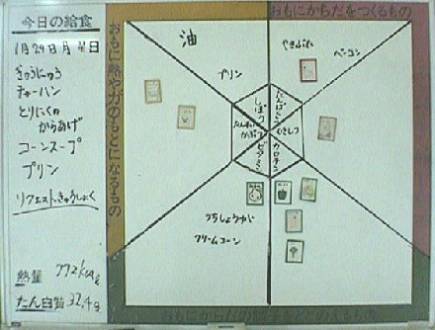 今日の給食
1月29日月曜日
ぎゅうにゅう
チャーハン
とりにくの
からあげ
コーンスープ
プリン
リクエストきゅうしょく
熱量 772kcal
たん白質 32.4g
おもに熱や力のもとになるもの
おもにからだをつくるもの
油
プリン
やきぶた
ベーコン
しぼう
たんぱくしつ
むきしつ
カロテン
ビタミンC
クリームコーン
おもにからだの調子をととのえるもの